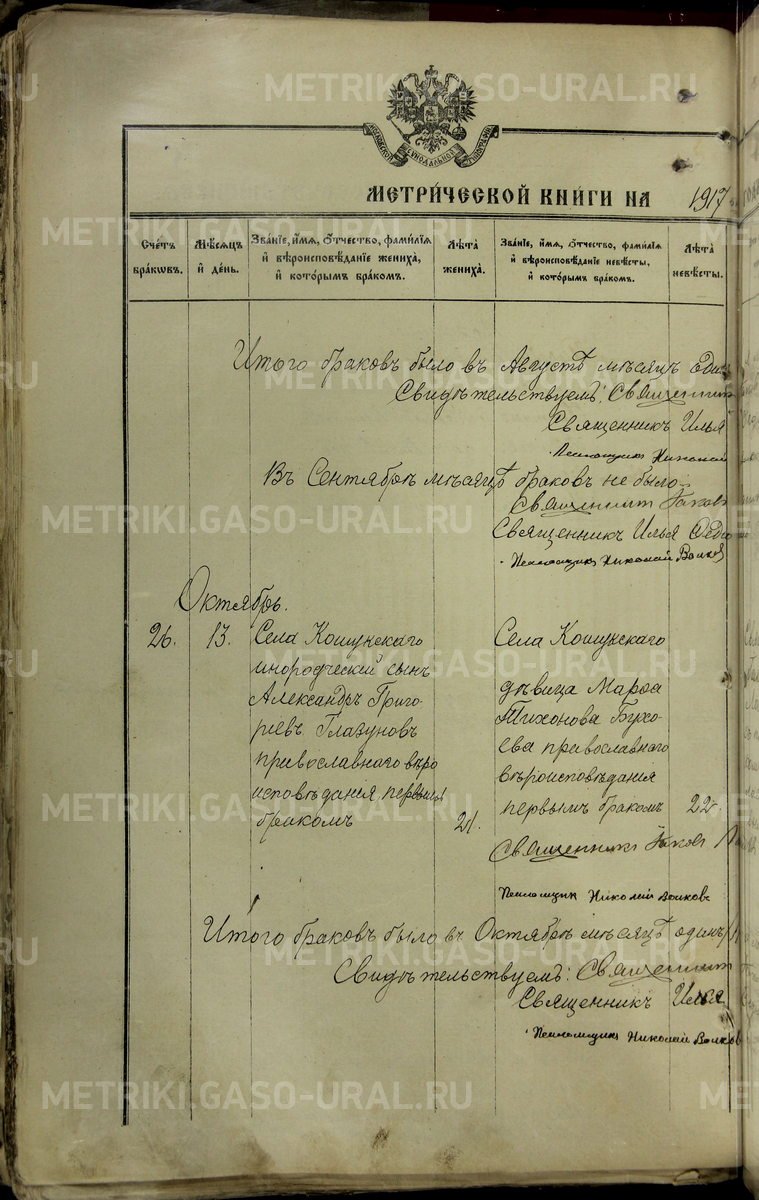 МОСКОВСКОЙ СѴНОДАЛЬНОЙ ТИПОГРАФІИ
МЕТРИ́ЧЕСКОЙ КНИ́ГИ НА 1917
Сче́тъ бра́кѡвъ.
Мѣ́сяцъ и҆ де́нь.
Зва́нїе, и҆́мѧ, ѻ҆́тчество, фами́лїѧ и҆ вѣроисповѣ́данїе жениха̀, и҆ кото́рымъ бра́комъ.
Лѣ́та жениха̀.
Зва́нїе, и҆́мѧ, ѻ҆́тчество, фами́лїѧ и҆ вѣроисповѣ́данїе невѣ́сты, и҆ кото́рымъ бра́комъ.
Лѣ́та невѣ́сты.
Итого браковъ было въ Августѣ мѣсяцѣ один
Свидѣтельствуемъ: Священникъ
Священникъ Илья
Псаломщикъ Николай
Въ Сентябрѣ мѣсяцѣ браковъ не было.
Священникъ Іаковъ
Священникъ Илья
Псаломщикъ Николай Волков
Октябрь.
26.
13.
Села Кошунскаго
инородческий сынъ
Александръ Григо-
ріевъ Глазуновъ
православнаго вѣро
исповѣданія, первымъ
бракомъ
21.
Села Кошунскаго
дѣвица Марѳа
Тихонова Бухо-
ева православнаго
вѣроисповѣданія
первымъ бракомъ
22
Священникъ Іаковъ
Псаломщикъ Николай Волковъ
Итого браковъ было въ Октябрѣ мѣсяцѣ одинъ
Свидѣтельствуемъ: Священникъ
Священникъ Илья
Псаломщикъ Николай Волков
METRIKI.GASO-URAL.RU